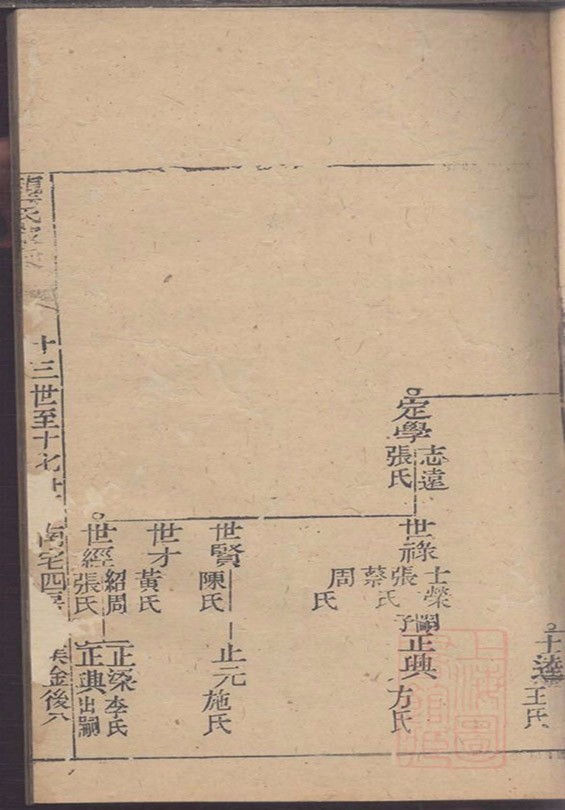 士達
王氏
定學
志遠
張氏
世祿
士榮
張氏
蔡氏
周氏
嗣子
正興
方氏
世賢
陳氏
正元
施氏
世才
黃氏
世經
紹周
張氏
正深
李氏
正興
出嗣
十三世至十七世
南宅四房
金後